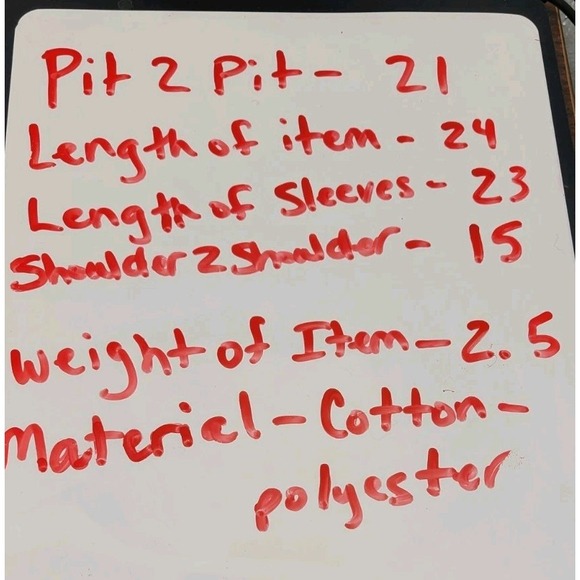 Pit 2 Pit - 21
Length of item - 24
Length of Sleeves - 23
Shoulder 2 Shoulder - 15
Weight of Item - 2.5
Material - Cotton -
polyester